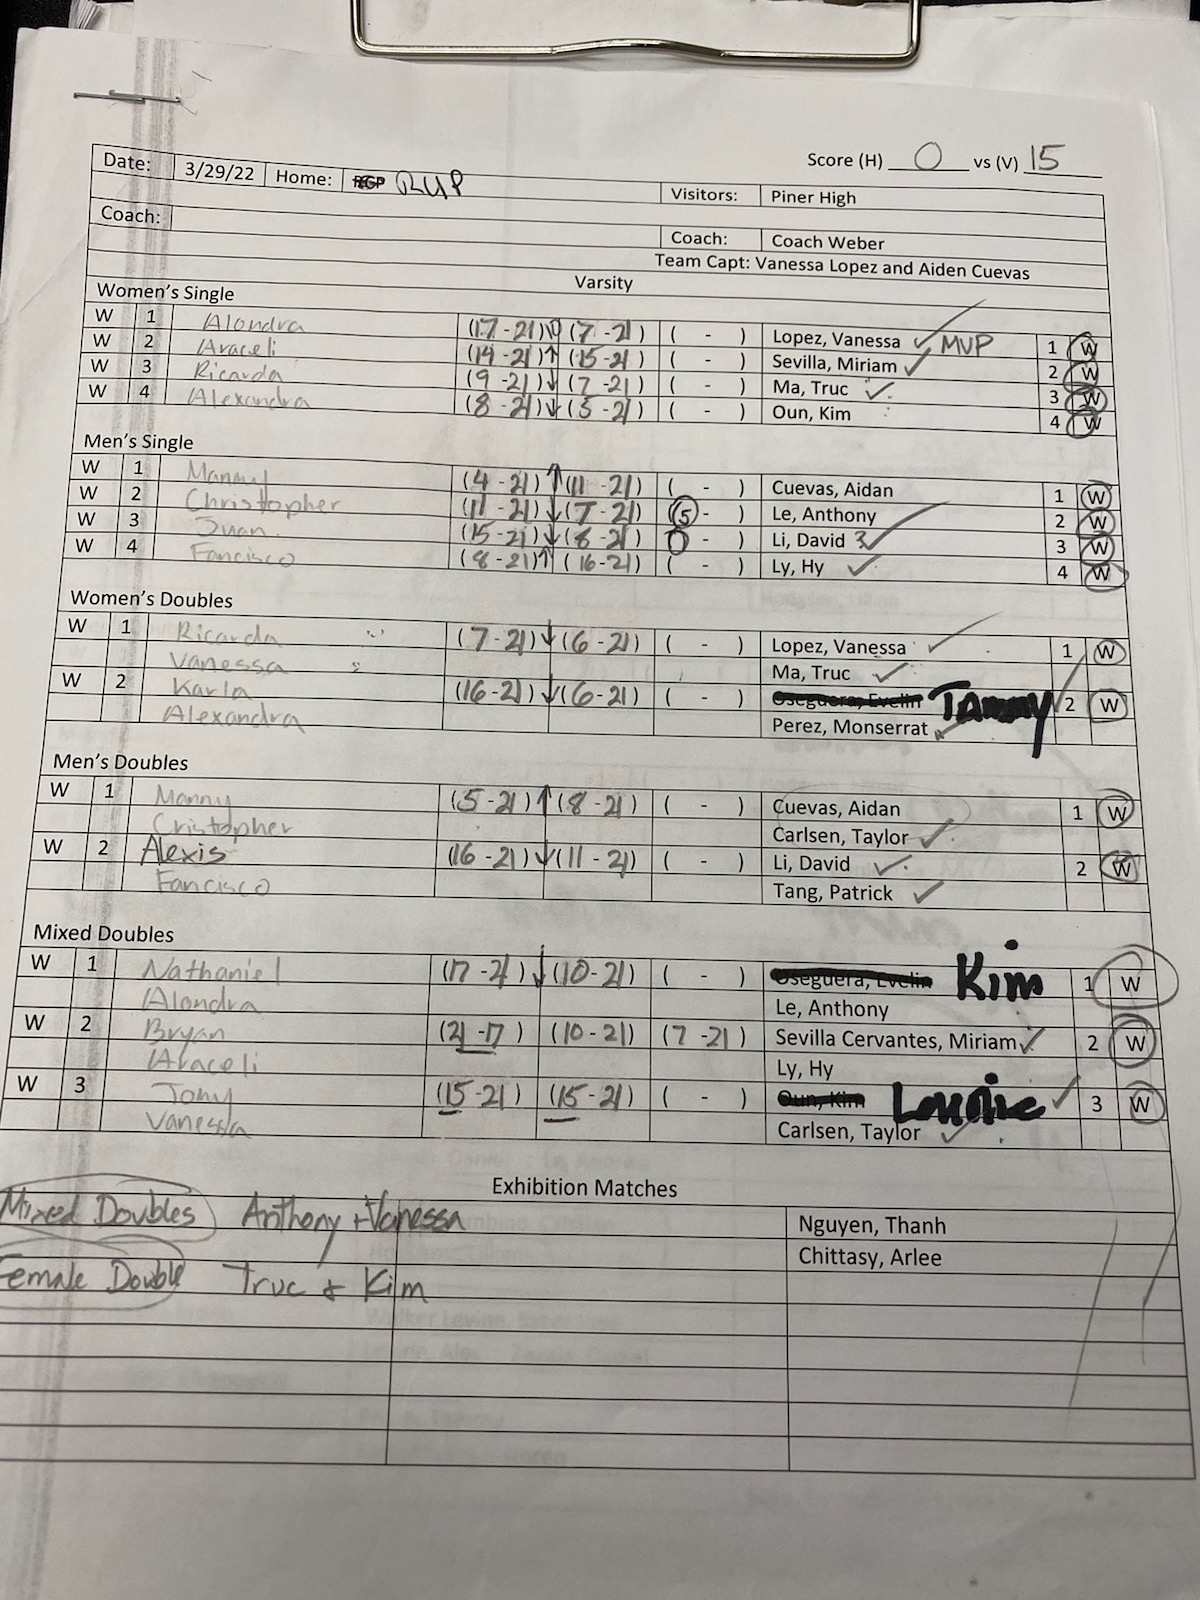 Score (H) 0 vs (V) 15
Date: 3/29/22 Home: RGP RUP
Visitors: Piner High
Coach:
Coach: Coach Weber
Team Capt: Vanessa Lopez and Aiden Cuevas
Varsity
Women's Single
W 1 Alondra (17 - 21) (7 - 21) ( - ) Lopez, Vanessa ✓ MVP 1 W
W 2 Araceli (14 - 21) ↑ (15 - 21) ( - ) Sevilla, Miriam ✓ 2 W
W 3 Ricarda (9 - 21) ↓ (7 - 21) ( - ) Ma, Truc ✓ 3 W
W 4 Alexandra (8 - 21) ↓ (5 - 21) ( - ) Oun, Kim 4 W
Men's Single
W 1 Manny (4 - 21) ↑ (11 - 21) ( - ) Cuevas, Aidan 1 W
W 2 Christopher (11 - 21) ↓ (7 - 21) (5 - ) Le, Anthony 2 W
W 3 Juan (15 - 21) ↓ (8 - 21) ( - ) Li, David 3 ✓ 3 W
W 4 Fancisco (8 - 21) ↑ (16 - 21) ( - ) Ly, Hy ✓ 4 W
Women's Doubles
W 1 Ricarda (7 - 21) ↓ (6 - 21) ( - ) Lopez, Vanessa ✓ 1 W
Vanessa Ma, Truc ✓
W 2 Karla (16 - 21) ↓ (6 - 21) ( - ) Oseguera, Evelin Tammy ✓ 2 W
Alexandra Perez, Monserrat ✓
Men's Doubles
W 1 Manny (5 - 21) ↑ (8 - 21) ( - ) Cuevas, Aidan 1 W
Cristopher Carlsen, Taylor ✓
W 2 Alexis (16 - 21) ↓ (11 - 21) ( - ) Li, David ✓ 2 W
Fancisco Tang, Patrick ✓
Mixed Doubles
W 1 Nathaniel (17 - 21) ↓ (10 - 21) ( - ) Oseguera, Evelin Kim 1 W
Alondra Le, Anthony
W 2 Bryan (21 - 17) (10 - 21) (7 - 21) Sevilla Cervantes, Miriam ✓ 2 W
Araceli Ly, Hy
W 3 Tony (15 - 21) (15 - 21) ( - ) Oun, Kim ✓ 3 W
Vanessa Carlsen, Taylor ✓
Exhibition Matches
Mixed Doubles Anthony + Vanessa Nguyen, Thanh
Chittasy, Arlee
Female Double Truc & Kim